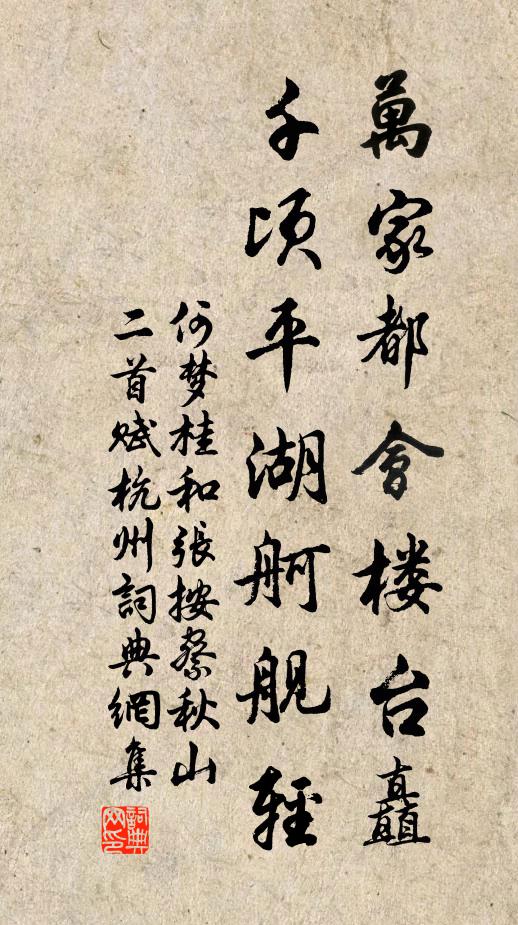 萬家都會楼台矗
千頃平湖舸舰輕
何梦桂和張按察秋山
二首赋杭州詞典網集
詞典网印